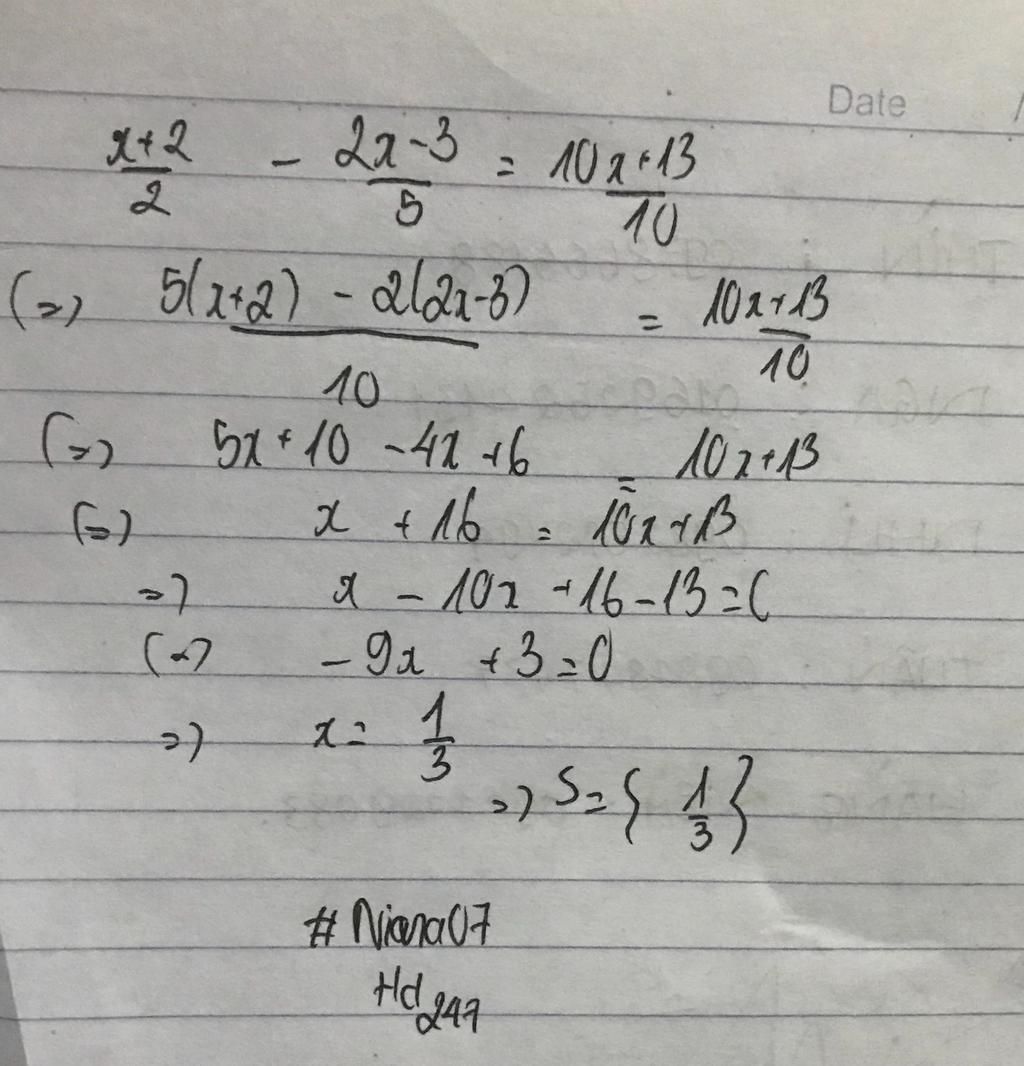 Date /
x+2/2 - 2x-3/5 = 10x+13/10
(=) 5(x+2) - 2(2x-3)/10 = 10x+13/10
(=) 5x+10 -4x+6 = 10x+13
(=) x +16 = 10x+13
=) x - 10x +16-13=(
(=) -9x +3=0
=) x= 1/3
=) S={1/3}
# Niana07
Hd247